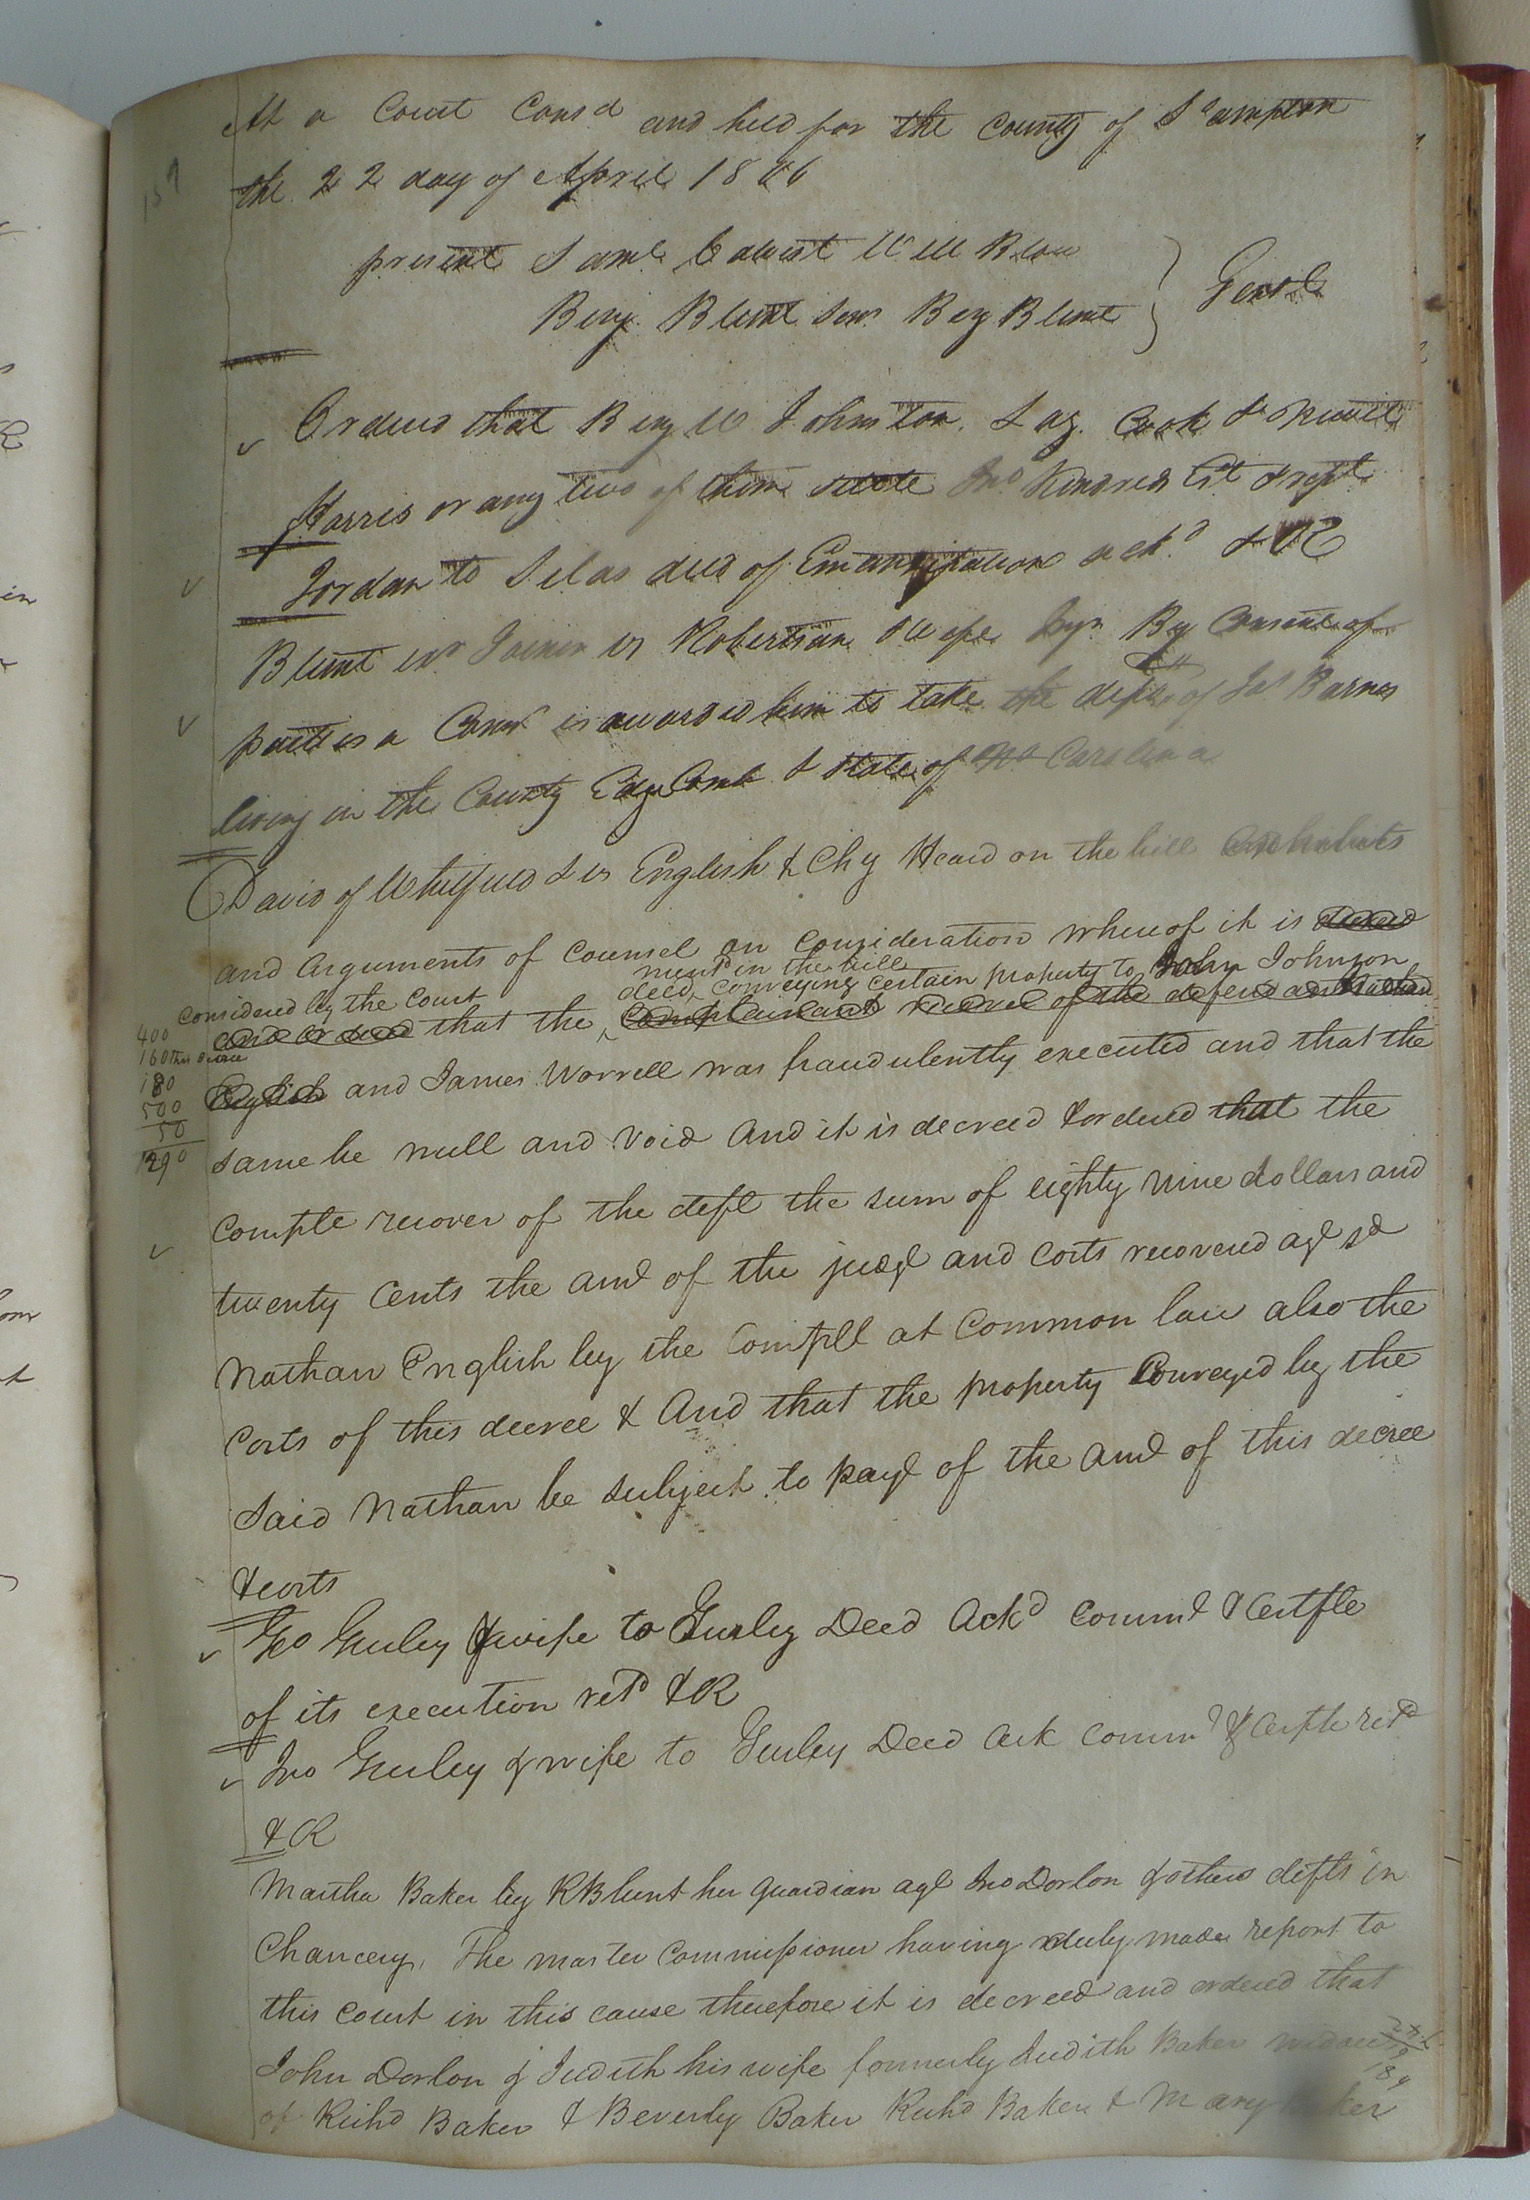 At a Court Cons.d and held for the County of S.ampton
the 22 day of April 1806
present Saml. Calvert Will Blow
Benj. Blunt Senr. Benj Blunt } Gent
Ordered that Benj W Johnston. Laz. Cook & Newit
Harris or any two of them settle Jno. Kindred Est & rept
Jordan to Silas deed of Emancipation ack.d & OR
Blunt vs Robertson By Consent of
parties a Comn. is awarded him to take the depn of Jas Barnes
living in the County EdgeComb & State of No Carolina
David of Whitfield & vs English & Chy Heard on the bill Exhibits
and arguments of Counsel on Consideration whereof it is decreed
considered by the Court
ment.d in the bill
deed, conveying certain property to John Johnson
and ordered that the Complainant recover of the defendant Nathan
English and James Worrell was fraudulently executed and that the
400
160
180
500
50
1290
same be null and void And it is decreed & ordered that the
Complt recover of the deft the sum of eighty nine dollars and
twenty Cents the amt of the judgt and Costs recovered agt sd
Nathan English by the Complt at Common law also the
Costs of this decree & And that the property Conveyed by the
Said Nathan be subject to payt of the amt of this decree
& costs
Geo Gurley & wife to Gurley Deed Ackd Commn & Certfte
of its execution retd & R
Jno Gurley & wife to Gurley Deed Ack Commn & Certfte retd
& R
Martha Baker by RBlunt her guardian agt Jno Dorlon & others defts in
Chancery. The master Commissioner having duly made report to
this Court in this cause therefore it is decreed and ordered that
John Dorlon & Judith his wife formerly Judith Baker widow
of Richd Baker & Beverly Baker Richd Baker & Mary Baker